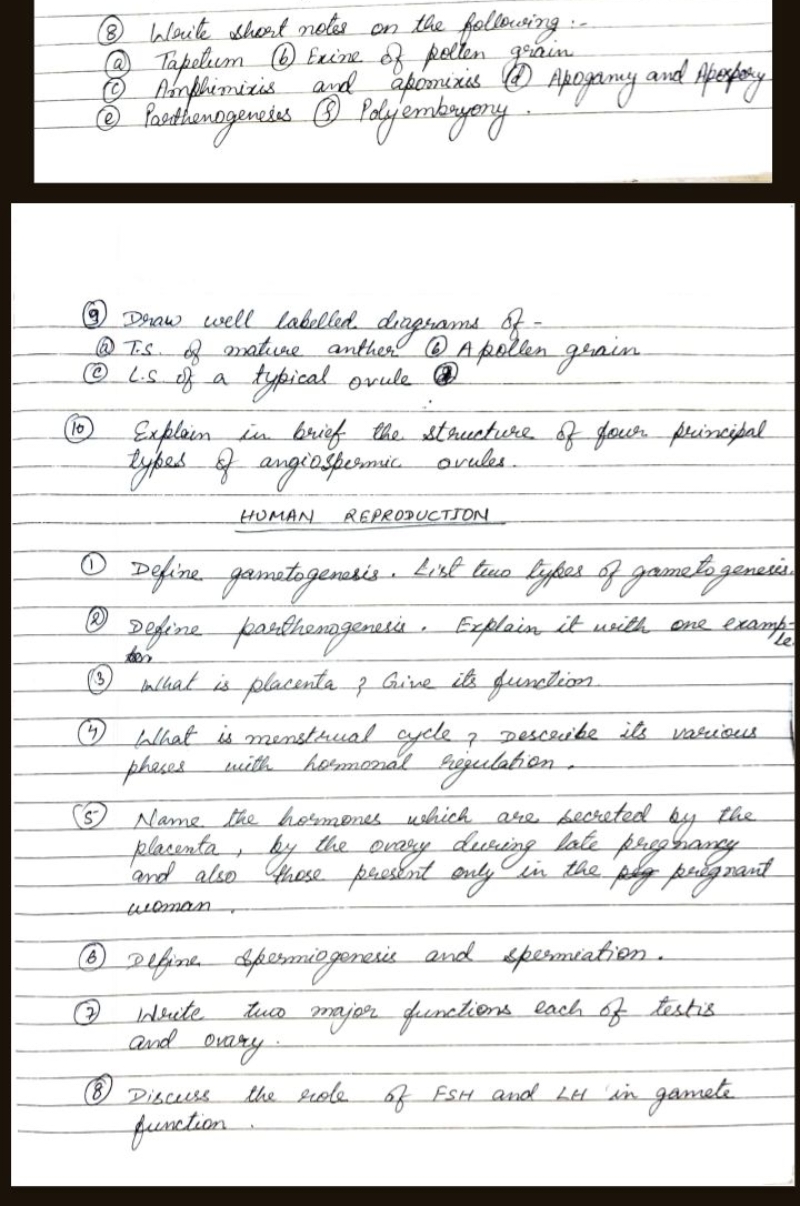 ⑧ Write short notes on the following :-
ⓐ Tapetum ⓑ Exine of pollen grain
ⓒ Amphimixis and apomixis ⓓ Apogamy and Apospory
ⓔ Parthenogenesis ⓕ Polyembryony .
⑨ Draw well labelled diagrams of -
ⓐ T.S. of mature anther ⓑ A pollen grain
ⓒ L.S. of a typical ovule
⑩ Explain in brief the structure of four principal
types of angiospermic ovules.
HUMAN REPRODUCTION
① Define gametogenesis. List two types of gametogenesis.
② Define parthenogenesis. Explain it with one examp-
le.
③ What is placenta ? Give its function
④ What is menstrual cycle ? Describe its various
phases with hormonal regulation .
⑤ Name the hormones which are secreted by the
placenta , by the ovary during late pregnancy
and also those present only in the pregnant
woman .
⑥ Define spermiogenesis and spermiation .
⑦ Write two major functions each of testis
and ovary .
⑧ Discuss the role of FSH and LH in gamete
function .